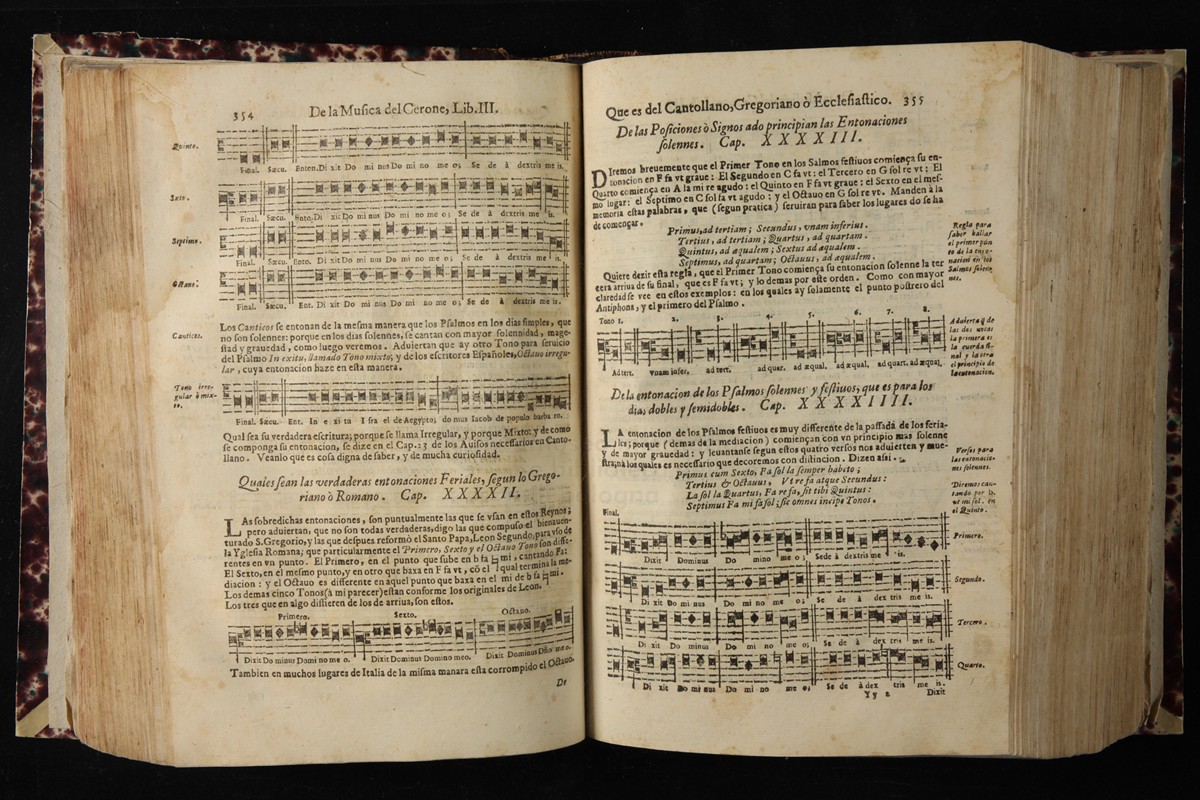 354 De la Musica del Cerone, Lib. III.
Quinto.
Final. Sæcu. Enton. Di xit Do mi nus Do mi no me o; Se de à dextris me is.
Sexto.
Final. Sæcu. Ento. Di xit Do mi nus Do mi no me o; Se de à dextris me is.
Septimo.
Final. Sæcu. Ento. Di xit Do mi nus Do mi no me o; Se de à dextris me is.
Octauo.
Final. Sæcu. Ent. Di xit Do mi nus Do mi no me o; Se de à dextris me is.
Canticos.
Los Canticos se entonan de la mesma manera que los Psalmos en los dias simples, que
no son solennes: porque en los dias solennes, se cantan con mayor solennidad, mage-
stad y grauedad, como luego veremos. Aduiertan que ay otro Tono para seruicio
del Psalmo In exitu, llamado Tono mixto; y de los escritores Españoles, Octauo irregu-
lar, cuya entonacion haze en esta manera.
Tono irre-
gular ò mix-
to.
Final. Sæcu. Ent. In e xi tu I sra el de Aegypto; do mus Iacob de populo barba ro.
Qual sea su verdadera escritura; porque se llama Irregular, y porque Mixto: y de como
se componga su entonacion, se dize en el Cap. 23 de los Auisos necessarios en Canto-
llano. Veanlo que es cosa digna de saber, y de mucha curiosidad.
Quales sean las verdaderas entonaciones Feriales, segun lo Grego-
riano ò Romano. Cap. XXXXII.
LAs sobredichas entonaciones, son puntualmente las que se vsan en estos Reynos;
pero aduiertan, que no son todas verdaderas, digo las que compuso el bienauen-
turado S. Gregorio, y las que despues reformò el Santo Papa, Leon Segundo, para vso de
la Yglesia Romana; que particularmente el Primero, Sexto y el Octauo Tono son diffe-
rentes en vn punto. El Primero, en el punto que sube en b fa ♮ mi, cantando Fa:
El Sexto, en el mesmo punto, y en otro que baxa en F fa vt, cõ el qual termina la me-
diacion: y el Octauo es differente en aquel punto que baxa en el mi de b fa ♮ mi.
Los demas cinco Tonos (à mi parecer) estan conforme los originales de Leon.
Los tres en algo differen de los de arriua, son estos.
Primero. Sexto. Octauo.
Dixit Do minus Domi no me o. Dixit Dominus Domino meo. Dixit Dominus Dño meo.
Tambien en muchos lugares de Italia de la misma manara esta corrompido el Octauo.
De
Que es del Cantollano, Gregoriano ò Ecclesiastico. 355
De las Posiciones ò Signos ado principian las Entonaciones
solennes. Cap. XXXXIII.
DIremos breuemente que el Primer Tono en los Salmos festiuos comiença su en-
tonacion en F fa vt graue: El Segundo en C fa vt: el Tercero en G sol re vt; El
Quarto comiença en A la mi re agudo: el Quinto en F fa vt graue: el Sexto en el mes-
mo lugar: el Septimo en C sol fa vt agudo: y el Octauo en G sol re vt. Manden à la
memoria estas palabras, que (segun pratica) seruiran para saber los lugares do se ha
de començar.
Primus, ad tertiam; Secundus, vnam inferius.
Tertius, ad tertiam; Quartus, ad quartam.
Quintus, ad æqualem; Sextus ad æqualem.
Septimus, ad quartam; Octauus, ad æqualem.
Regla para
saber hallar
el primer pũn
to de la ento-
nacion en los
Salmos solen-
nes.
Quiere dezir esta regla, que el Primer Tono comiença su entonacion solenne la ter
cera arriua de su final, que es F fa vt; y lo demas por este orden. Como con mayor
claredad se vee en estos exemplos: en los quales ay solamente el punto postrero del
Antiphona, y el primero del Psalmo.
Tono 1. 2. 3. 4. 5. 6. 7. 8.
Ad tert. vnam infer. ad tert. ad quar. ad æqual. ad æqual. ad quart. ad æqual.
De la entonacion de los Psalmos solennes y festiuos, que es para los
dias dobles y semidobles. Cap. XXXXIIII.
LA entonacion de los Psalmos festiuos es muy differente de la passada de los feria-
les; porque (demas de la mediacion) comiençan con vn principio mas solenne
y de mayor grauedad: y leuantanse segun estos quatro versos nos aduierten y mue-
stran, à los quales es necessario que decoremos con distincion. Dizen assi.
Versos para
las entonacio-
nes solennes.
Primus cum Sexto, Fa sol la semper habeto;
Tertius & Octauus, Vt re fa atque Secundus:
La sol la Quartus, Fa re fa, sit tibi Quintus:
Septimus Fa mi fa sol; sic omnes incipe Tonos.
Final.
Primero.
Dixit Dominus Domi no me o; Sede à dextris me is.
Segundo.
Di xit Do mi nus Do mi no me o; Se de à dex tris me is.
Tercero.
Di xit Do mi nus Do mi no me o; Se de à dex tris me is.
Quarto.
Di xit Do mi nus Do mi no me o; Se de à dex tris me is.
Yy 2 Dixit